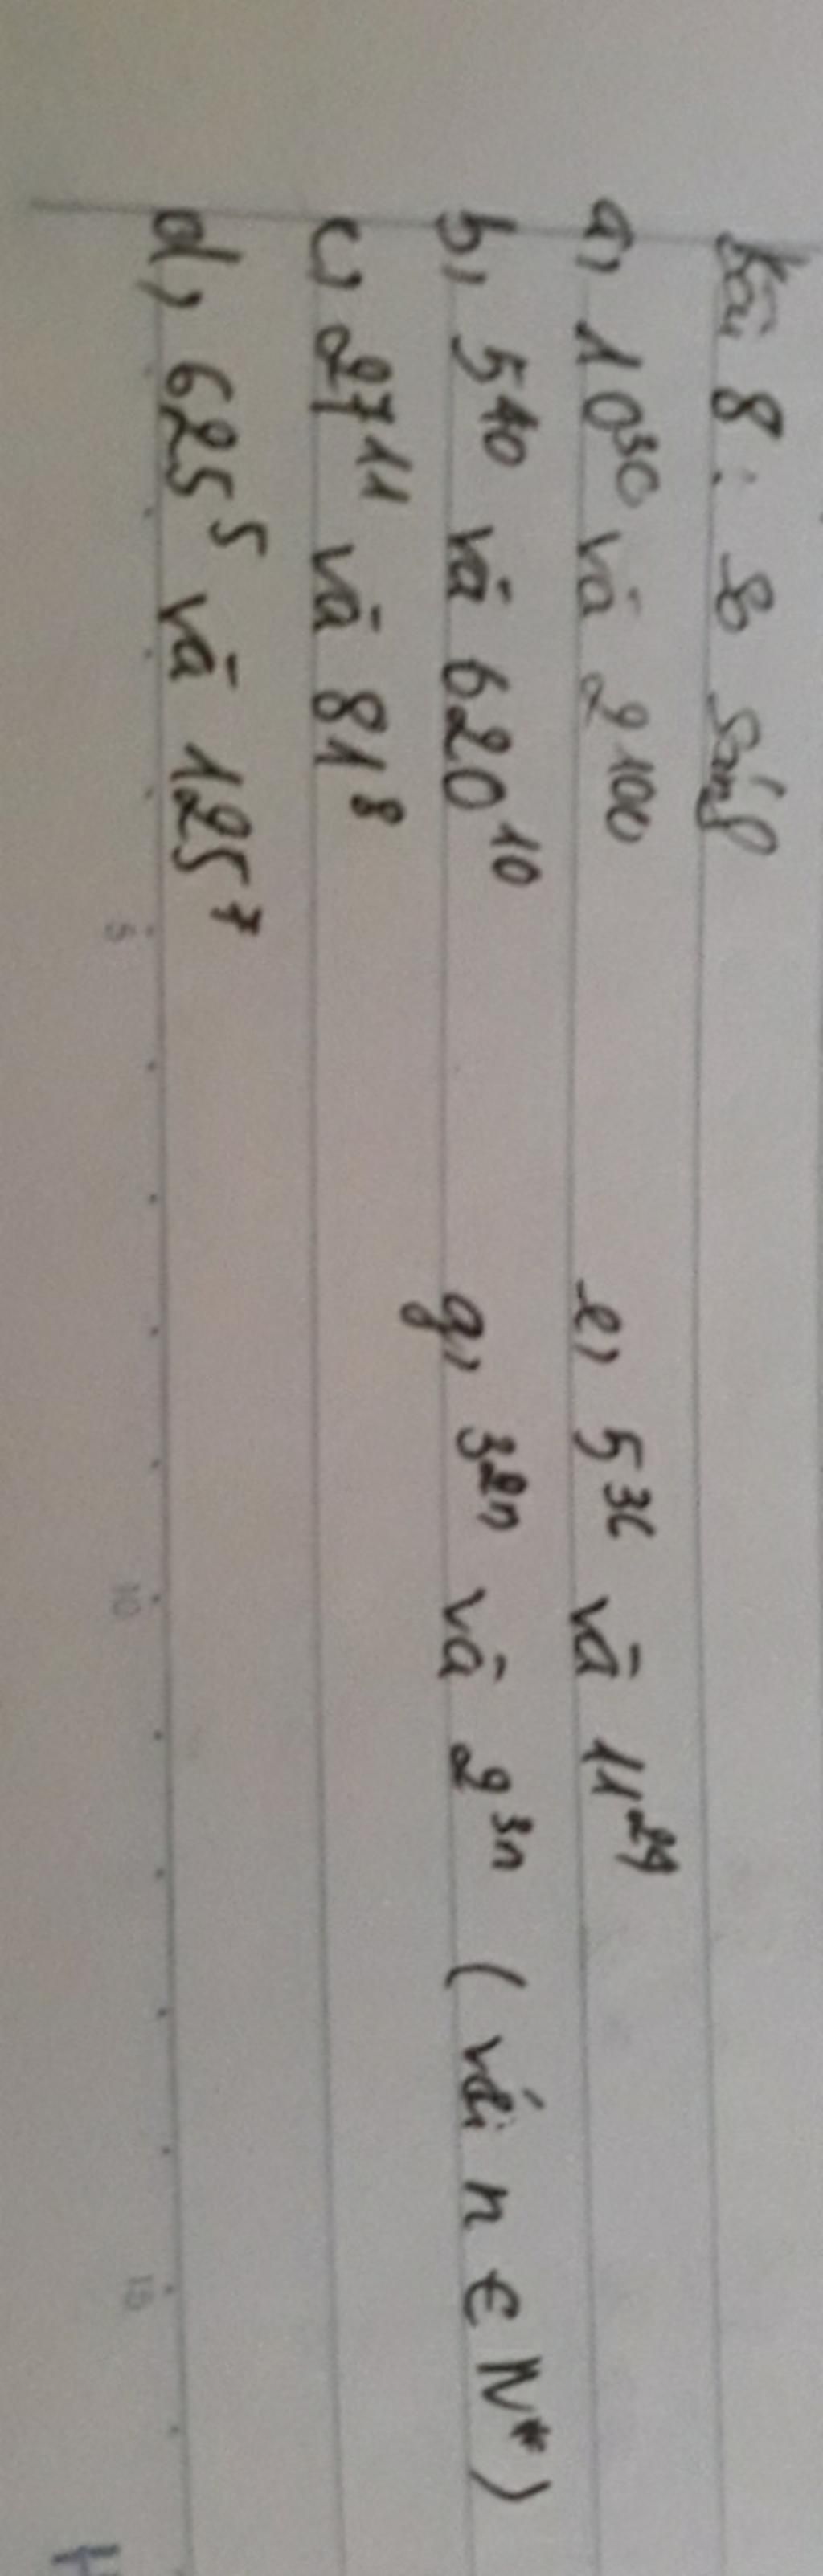 Bài 8: So sánh
a, 10³⁰ và 2¹⁰⁰
b, 5⁴⁰ và 620¹⁰
c, 27¹¹ và 81⁸
d, 625⁵ và 125⁷
e, 5³⁶ và 11²⁴
g, 3²ⁿ và 2³ⁿ (với n ∈ N*)
5
10
15